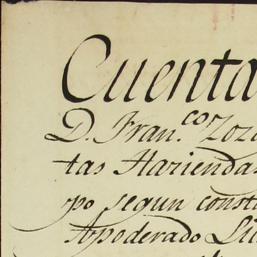 Cuenta
D. Fran.co Zoz
tas Haziendas
po segun consta
Apoderado Lu